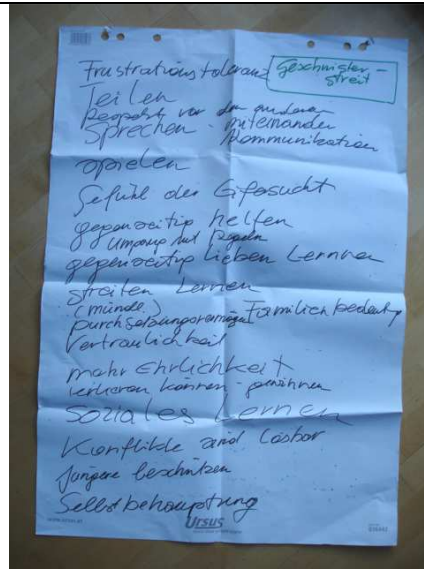 Frustrationstoleranz
Geschwister-
streit
Teilen
Respekt vor dem anderen
Sprechen - miteinander
Kommunikation
spielen
Gefühl der Eifersucht
gegenseitig helfen
Umgang mit Regeln
gegenseitig lieben Lernen
streiten Lernen
(mündl.)
Familienbedeutg
Durchsetzungsvermögen
Vertraulichkeit
mehr Ehrlichkeit
verlieren können - gewinnen
Soziales Lernen
Konflikte sind lösbar
Jüngere beschützen
Selbstbehauptung
Ursus